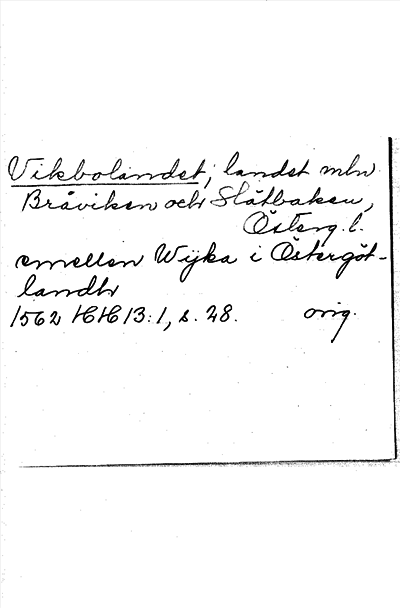 Vikbolandet; landet mln
Bråviken och Slätbaken,
Österg. l.
emellen Wijka i Östergöt-
landh
1562 HH 13:1, s. 28. orig.